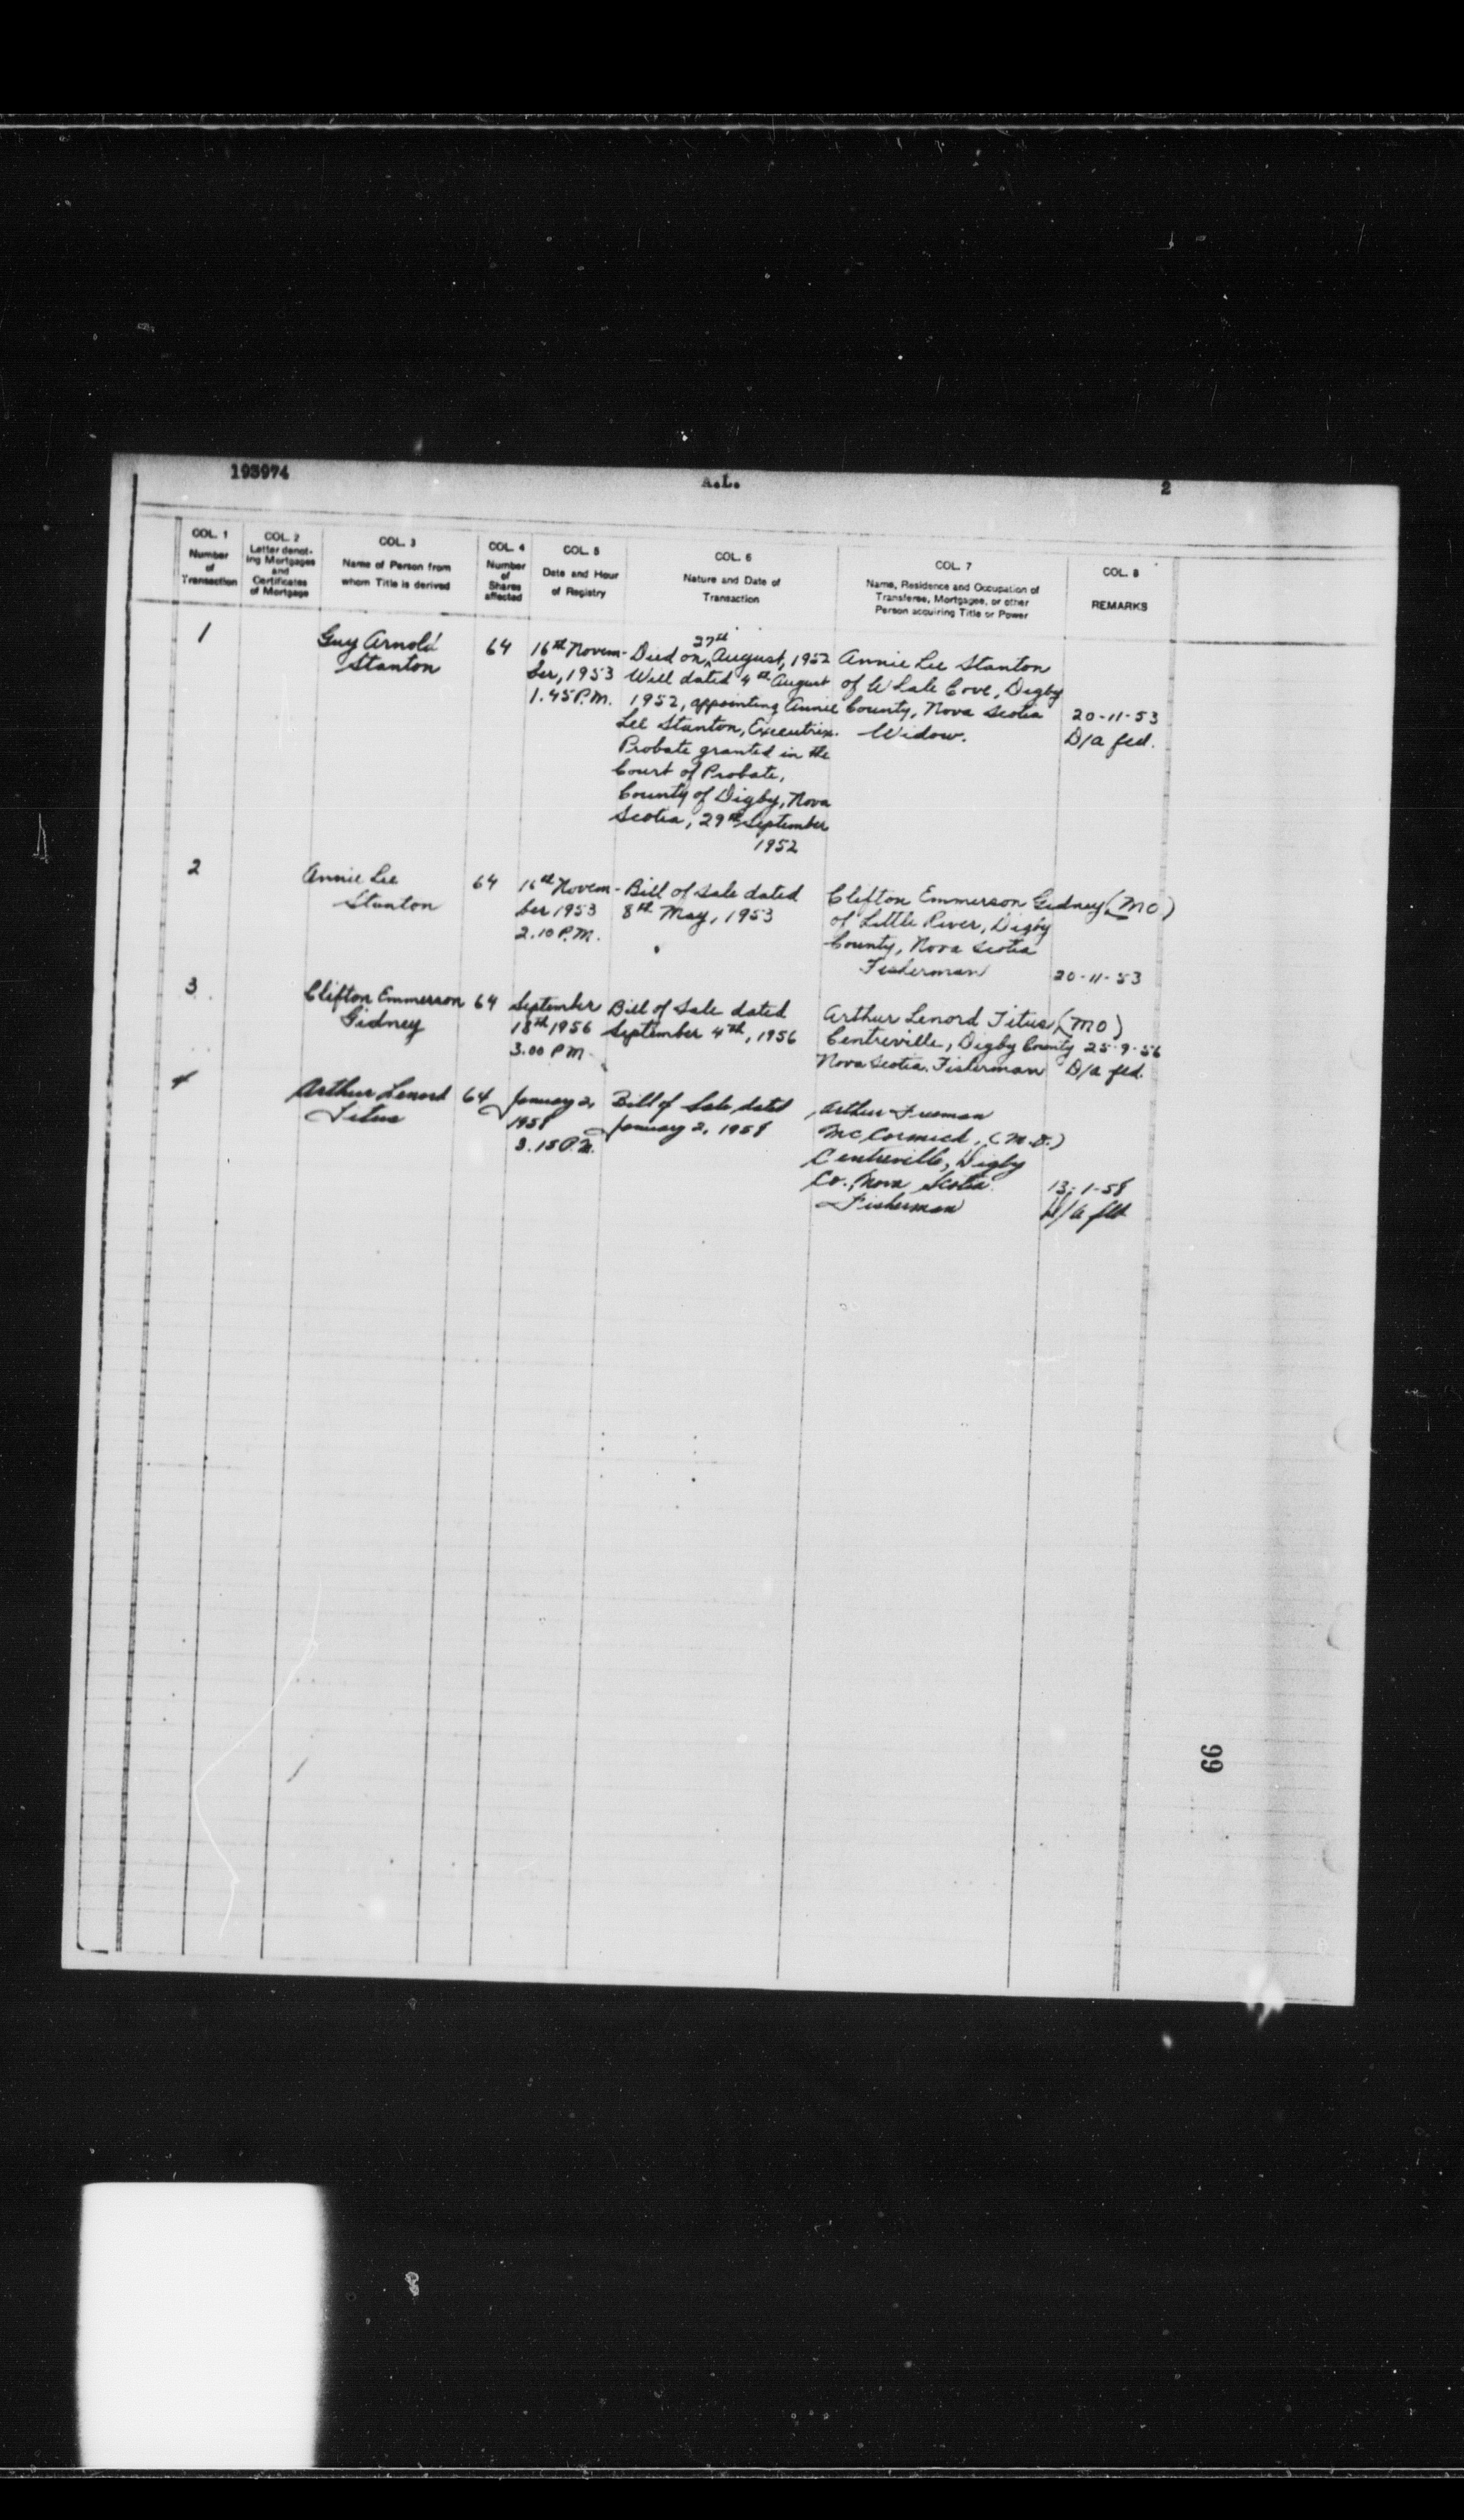 193974 A.L. 2
COL. 1 Number of Transaction
COL. 2 Letter denoting Mortgages and Certificates of Mortgage
COL. 3 Name of Person from whom Title is derived
COL. 4 Number of Shares affected
COL. 5 Date and Hour of Registry
COL. 6 Nature and Date of Transaction
COL. 7 Name, Residence and Occupation of Transferee, Mortgagee, or other Person acquiring Title or Power
COL. 8 REMARKS
1
Guy Arnold
Stanton
64
16th Novem-
ber, 1953
1.45 P.M.
Died on 27th August, 1952
Will dated 4th August
1952, appointing Annie
Lee Stanton, Executrix.
Probate granted in the
Court of Probate,
County of Digby, Nova
Scotia, 29th September
1952
Annie Lee Stanton
of Whale Cove, Digby
County, Nova Scotia
Widow.
20-11-53
D/a fld.
2
Annie Lee
Stanton
64
16th Novem-
ber 1953
2.10 P.M.
Bill of Sale dated
8th May, 1953
Clifton Emmerson Gidney (MO)
of Little River, Digby
County, Nova Scotia
Fisherman
20-11-53
3
Clifton Emmerson
Gidney
64
September
18th 1956
3.00 PM
Bill of Sale dated
September 4th, 1956
Arthur Lenord Titus (MO)
Centreville, Digby County
Nova Scotia. Fisherman
25-9-56
D/a fld.
4
Arthur Lenord
Titus
64
January 2,
1958
3.15 P.M.
Bill of Sale dated
January 2, 1958
Arthur Freeman
McCormick, (M.O.)
Centreville, Digby
Co., Nova Scotia
Fisherman
13-1-58
D/a fld
66